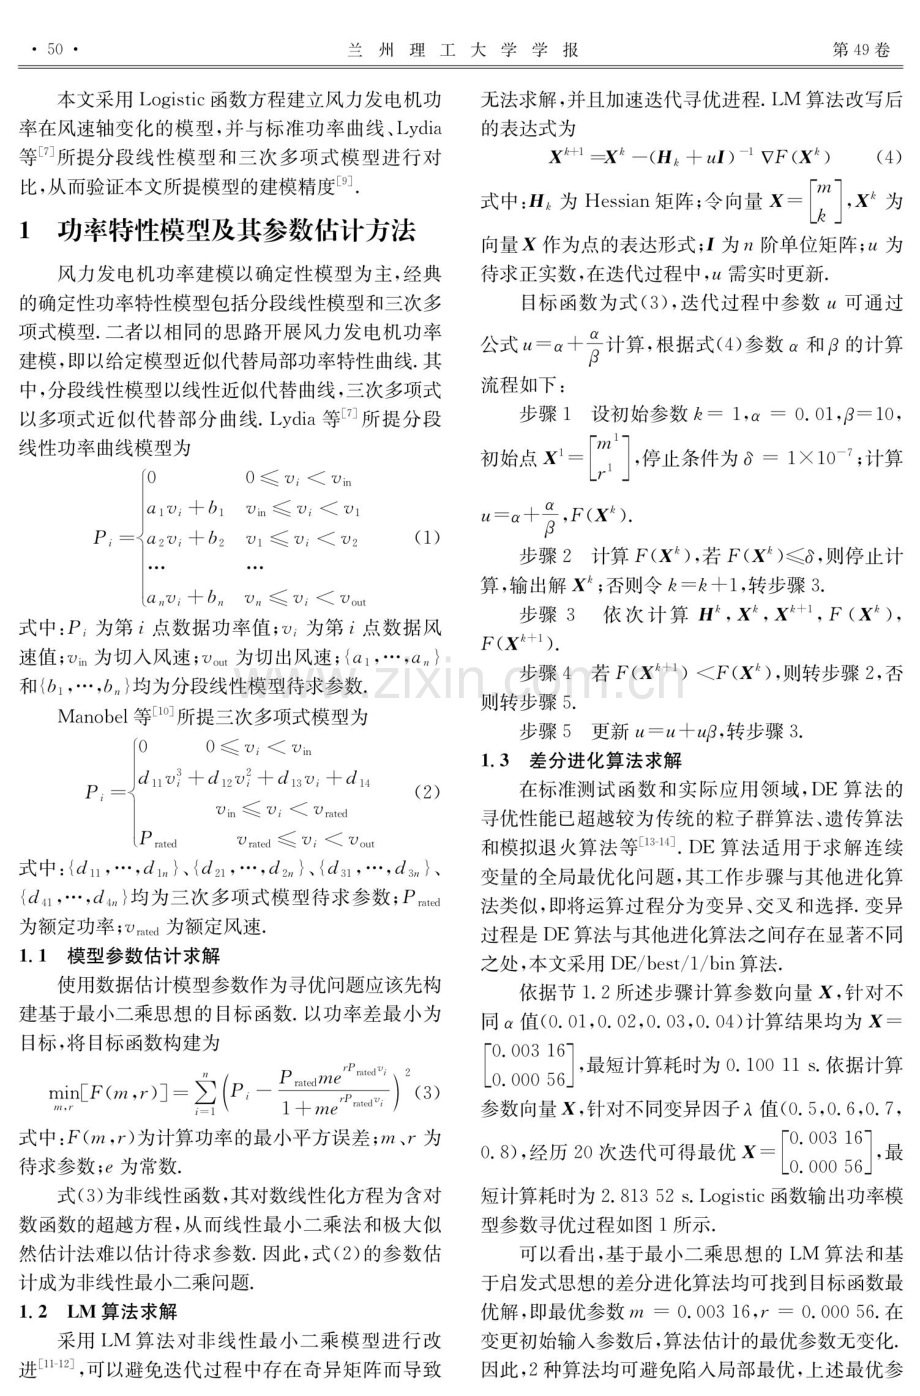 · 50 ·
兰 州 理 工 大 学 学 报
第 49 卷
本文采用 Logistic 函数方程建立风力发电机功
率在风速轴变化的模型,并与标准功率曲线、Lydia
等[7]所提分段线性模型和三次多项式模型进行对
比,从而验证本文所提模型的建模精度[9].
1 功率特性模型及其参数估计方法
风力发电机功率建模以确定性模型为主,经典
的确定性功率特性模型包括分段线性模型和三次多
项式模型. 二者以相同的思路开展风力发电机功率
建模,即以给定模型近似代替局部功率特性曲线. 其
中,分段线性模型以线性近似代替曲线,三次多项式
以多项式近似代替部分曲线. Lydia 等[7] 所提分段
线性功率曲线模型为
0 0≤vi<vin
a1vi+b1 vin≤vi<v1
Pi= a2vi+b2 v1≤vi<v2 (1)
… …
anvi+bn vn≤vi<vout
式中:Pi 为第 i 点数据功率值;vi 为第 i 点数据风
速值;vin 为切入风速;vout 为切出风速;{a1,…,an}
和{b1,…,bn}均为分段线性模型待求参数.
Manobel 等[10]所提三次多项式模型为
0 0≤vi<vin
d11vi^3+d12vi^2+d13vi+d14
Pi= (2)
vin≤vi<vrated
Prated vrated≤vi<vout
式中:{d11,…,d1n}、{d21,…,d2n}、{d31,…,d3n}、
{d41,…,d4n}均为三次多项式模型待求参数;Prated
为额定功率;vrated 为额定风速.
1.1 模型参数估计求解
使用数据估计模型参数作为寻优问题应该先构
建基于最小二乘思想的目标函数. 以功率差最小为
目标,将目标函数构建为
min m,r [F(m,r)]=∑ i=1 n (Pi − Prated me^{rPrated vi} / 1+me^{rPrated vi})^2 (3)
式中:F(m,r)为计算功率的最小平方误差;m、r 为
待求参数;e 为常数.
式(3)为非线性函数,其对数线性化方程为含对
数函数的超越方程,从而线性最小二乘法和极大似
然估计法难以估计待求参数. 因此,式(2)的参数估
计成为非线性最小二乘问题.
1.2 LM 算法求解
采用 LM 算法对非线性最小二乘模型进行改
进[11-12],可以避免迭代过程中存在奇异矩阵而导致
无法求解,并且加速迭代寻优进程. LM 算法改写后
的表达式为
X^{k+1}=X^k−(Hk+uI)^{−1}∇F(X^k) (4)
式中:Hk 为 Hessian 矩阵;令向量 X=[m k],X^k 为
向量 X 作为点的表达形式;I 为 n 阶单位矩阵;u 为
待求正实数,在迭代过程中,u 需实时更新.
目标函数为式(3),迭代过程中参数 u 可通过
公式 u=α+α/β 计算,根据式(4)参数 α 和 β 的计算
流程如下:
步骤 1 设初始参数 k=1,α=0.01,β=10,
初始点 X^1=[m^1 r^1],停止条件为 δ=1×10^{−7};计算
u=α+α/β,F(X^k).
步骤 2 计算 F(X^k),若 F(X^k)≤δ,则停止计
算,输出解 X^k;否则令 k=k+1,转步骤 3.
步骤 3 依次计算 H^k,X^k,X^{k+1},F(X^k),
F(X^{k+1}).
步骤 4 若 F(X^{k+1})<F(X^k),则转步骤 2,否
则转步骤 5.
步骤 5 更新 u=u+uβ,转步骤 3.
1.3 差分进化算法求解
在标准测试函数和实际应用领域,DE 算法的
寻优性能已超越较为传统的粒子群算法、遗传算法
和模拟退火算法等[13-14]. DE 算法适用于求解连续
变量的全局最优化问题,其工作步骤与其他进化算
法类似,即将运算过程分为变异、交叉和选择. 变异
过程是 DE 算法与其他进化算法之间存在显著不同
之处,本文采用 DE/best/1/bin 算法.
依据节 1.2 所述步骤计算参数向量 X,针对不
同 α 值(0.01,0.02,0.03,0.04)计算结果均为 X=
[0.003 16 0.000 56],最短计算耗时为 0.100 11 s. 依据计算
参数向量 X,针对不同变异因子 λ 值(0.5,0.6,0.7,
0.8),经历 20 次迭代可得最优 X=[0.003 16 0.000 56],最
短计算耗时为 2.813 52 s. Logistic 函数输出功率模
型参数寻优过程如图 1 所示.
可以看出,基于最小二乘思想的 LM 算法和基
于启发式思想的差分进化算法均可找到目标函数最
优解,即最优参数 m=0.003 16,r=0.000 56. 在
变更初始输入参数后,算法估计的最优参数无变化.
因此,2 种算法均可避免陷入局部最优,上述最优参
www.zixin.com.cn